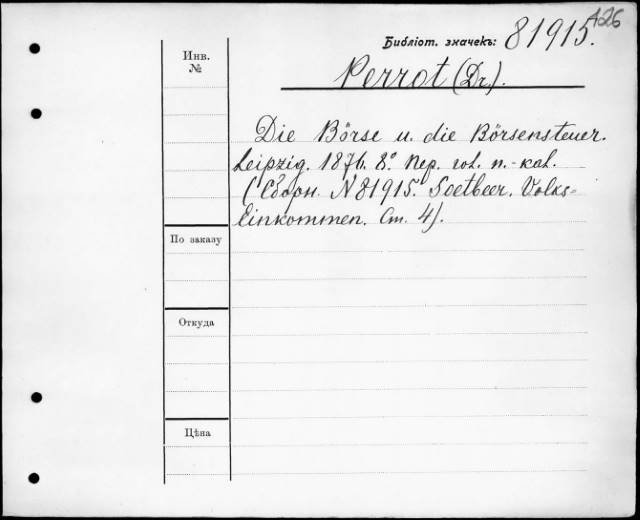 426
Библіот. значекъ: 81915.
Инв.
№
Perrot (Dr.).
Die Börse u. die Börsensteuer.
Leipzig. 1876. 8° Пер. кол. п.-каl.
(Сборн. N 81915. Soetbeer. Volks-
Einkommen. Ст. 4).
По заказу
Откуда
Цѣна